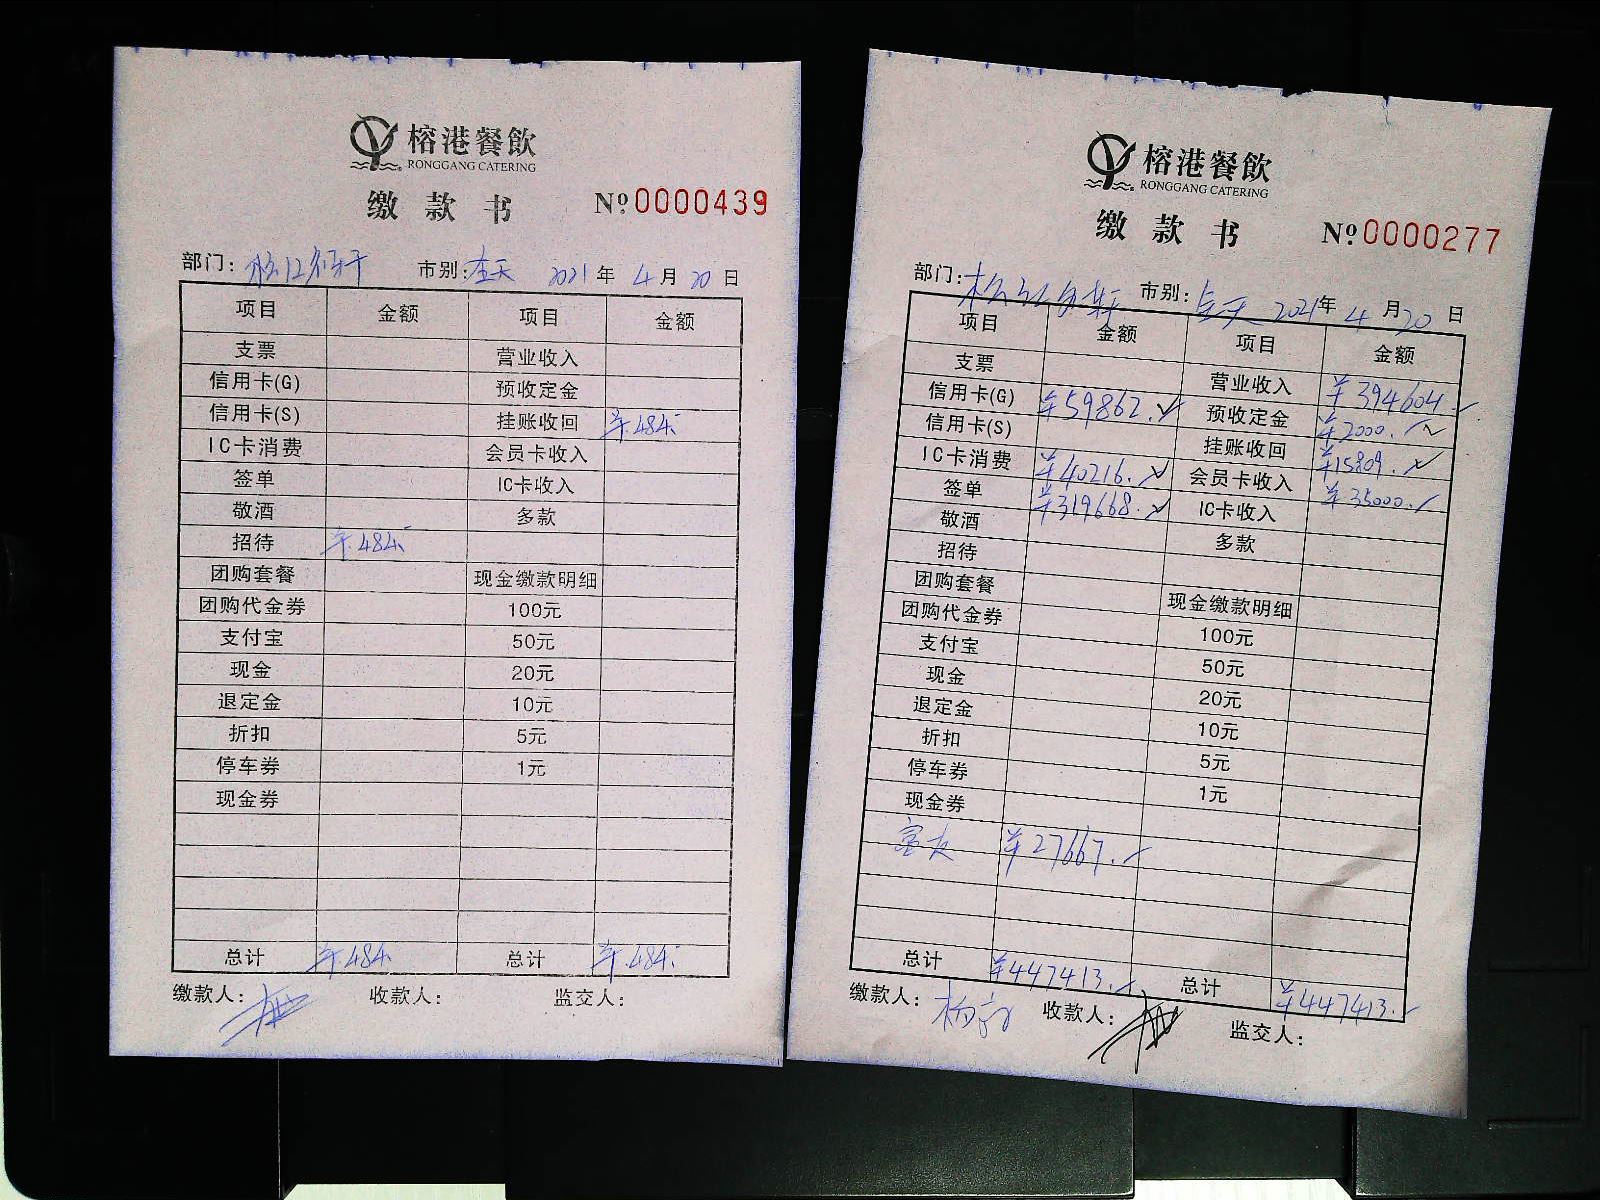 榕港餐飲
RONGGANG CATERING
缴款书 Nº:0000439
部门: 市别:全天 2021年4月20日
项目 金额 项目 金额
支票 营业收入
信用卡(G) 预收定金
信用卡(S) 挂账收回 ¥484.
IC卡消费 会员卡收入
签单 IC卡收入
敬酒 多款
招待 ¥484.
团购套餐 现金缴款明细
团购代金券 100元
支付宝 50元
现金 20元
退定金 10元
折扣 5元
停车券 1元
现金券
总计 ¥484. 总计 ¥484.
缴款人: 收款人: 监交人:
榕港餐飲
RONGGANG CATERING
缴款书 Nº:0000277
部门: 市别:全天 2021年4月20日
项目 金额 项目 金额
支票 营业收入 ¥394604.
信用卡(G) ¥59862. 预收定金 ¥2000.
信用卡(S) 挂账收回 ¥15809.
IC卡消费 ¥40216. 会员卡收入 ¥35000.
签单 ¥319668. IC卡收入
敬酒 多款
招待
团购套餐 现金缴款明细
团购代金券 100元
支付宝 50元
现金 20元
退定金 10元
折扣 5元
停车券 1元
现金券
¥27667.
总计 ¥447413. 总计 ¥447413.
缴款人: 收款人: 监交人: